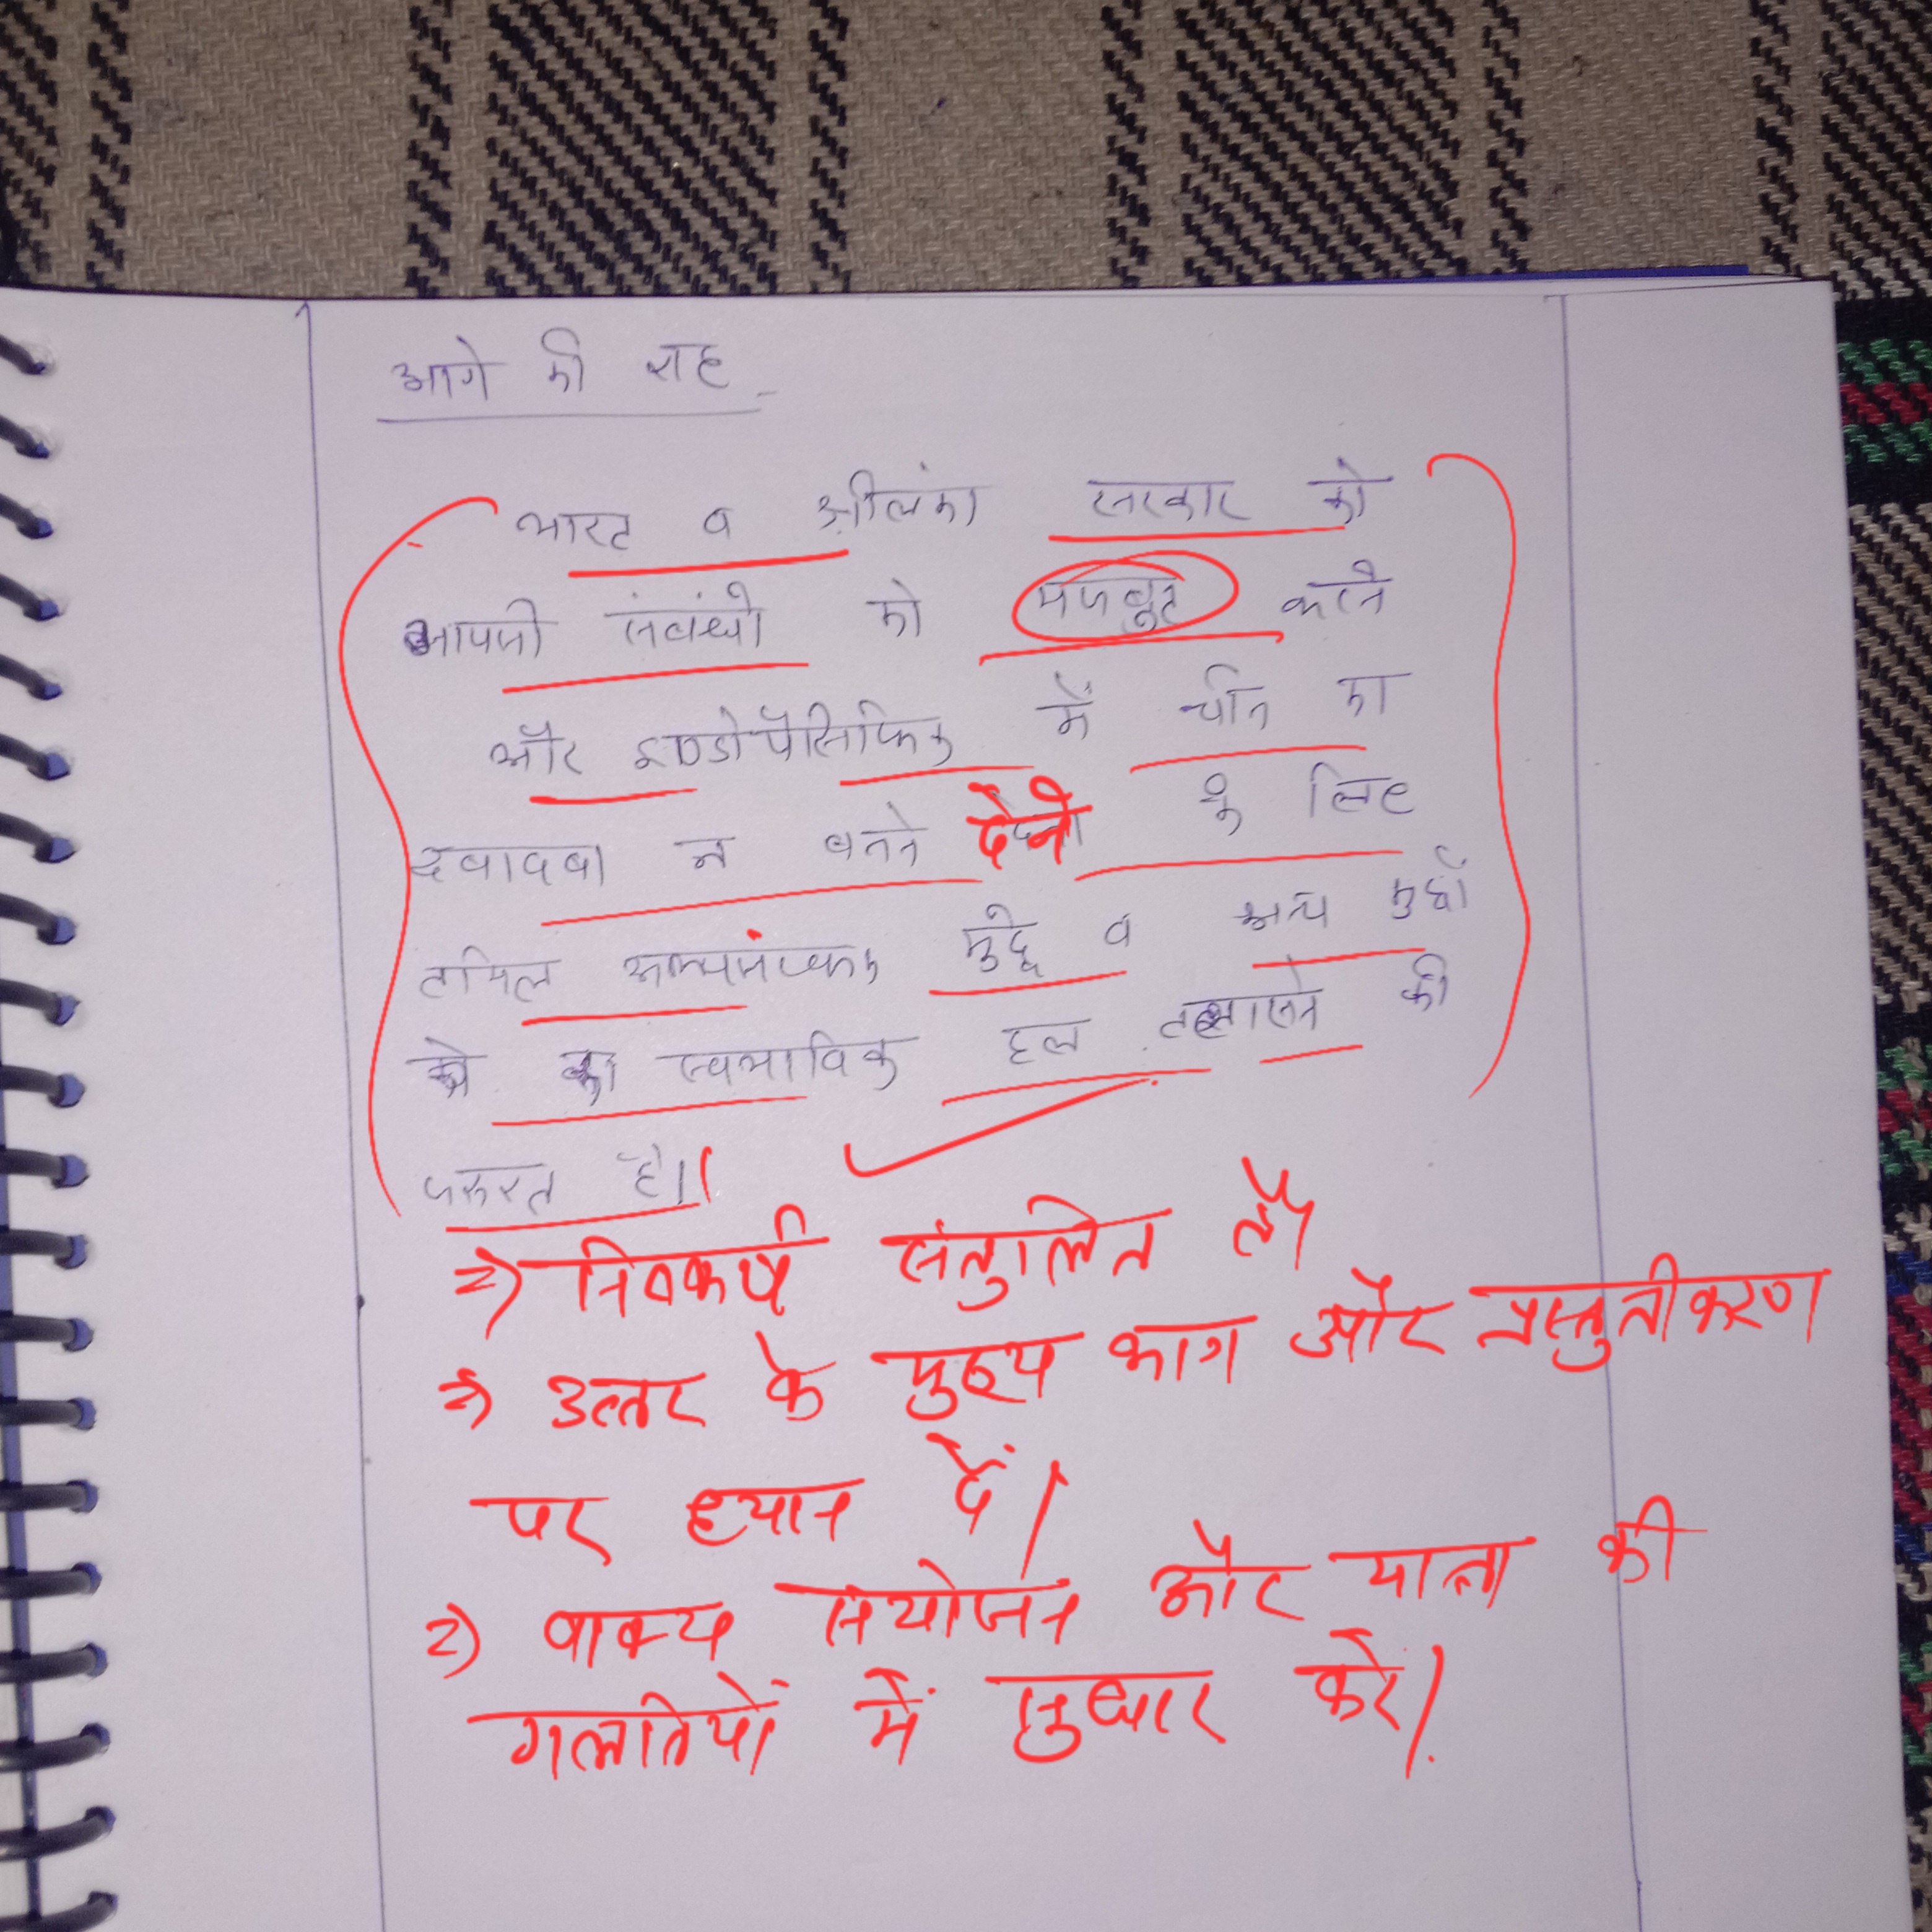 आगे की राह
भारत व श्रीलंका सरकार को
आपसी संबंधो को मजबुत करने
और इण्डोपैसिफिक में चीन का
दवादबा न बनने देने के लिए
तमिल अल्पसंख्यक मुद्दे व अन्य मुद्दों
को का स्वभाविक हल तलाशने की
जरुरत है।
=) निष्कर्ष संतुलित है।
=) उत्तर के मुख्य भाग और प्रस्तुतीकरण
पर ध्यान दें।
=) वाक्य संयोजन और मात्रा की
गलतियों में सुधार करें।